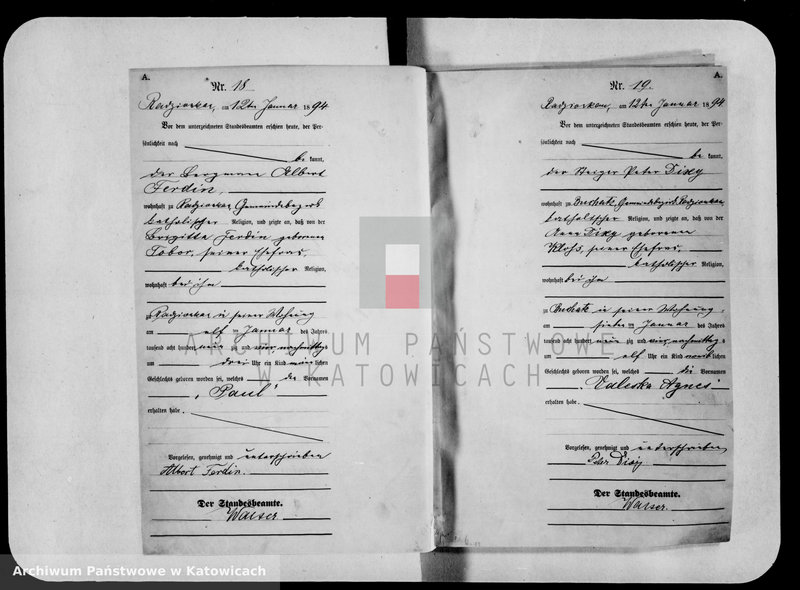 A.
Nr. 18
Radzionkau, am 12ten Januar 1894
Vor dem unterzeichneten Standesbeamten erschien heute, der Per-
sönlichkeit nach
be kannt,
der Bergmann Albert
Ferdin,
wohnhaft zu Radzionkau, Gemeindebezirk
katholischer Religion, und zeigte an, daß von der
Brigitta Ferdin geborenen
Tobor, seiner Ehefrau,
katholischer Religion,
wohnhaft bei ihm
zu Radzionkau in seiner Wohnung
am elf ten Januar des Jahres
tausend acht hundert neun zig und vier nachmittags
um drei Uhr ein Kind männlichen
Geschlechts geboren worden sei, welches den Vornamen
"Paul"
erhalten habe.
Vorgelesen, genehmigt und unterschrieben
Albert Ferdin.
Der Standesbeamte.
Walser
A.
Nr. 19.
Radzionkau, am 12ten Januar 1894
Vor dem unterzeichneten Standesbeamten erschien heute, der Per-
sönlichkeit nach
be kannt,
der Steiger Peter
wohnhaft zu Gemeindebezirk Radzionkau,
katholischer Religion, und zeigte an, daß von der
Anna geborenen
seiner Ehefrau,
katholischer Religion,
wohnhaft bei ihm
zu in seiner Wohnung,
am sieben ten Januar des Jahres
tausend acht hundert neun zig und vier nachmittags
um elf Uhr ein Kind weib lichen
Geschlechts geboren worden sei, welches die Vornamen
Valeska Agnes
erhalten habe.
Vorgelesen, genehmigt und unterschrieben
Peter
Der Standesbeamte.
Walser.
ARCHIWUM PAŃSTWOWE
W KATOWICACH
Archiwum Państwowe w Katowicach